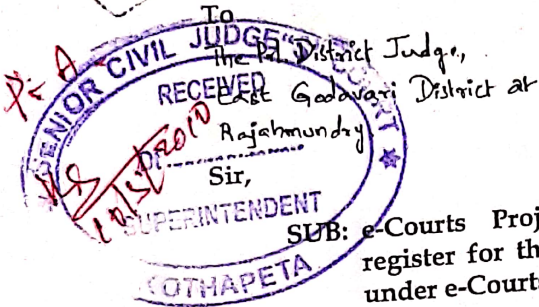 To
The Prl. District Judge,
East Godavari District at
Rajahmundry
Sir,
SUB: e-Courts Proj
register for th
under e-Courts
SENIOR CIVIL JUDGE'S COURT
RECEIVED
SUPERINTENDENT
KOTHAPETA